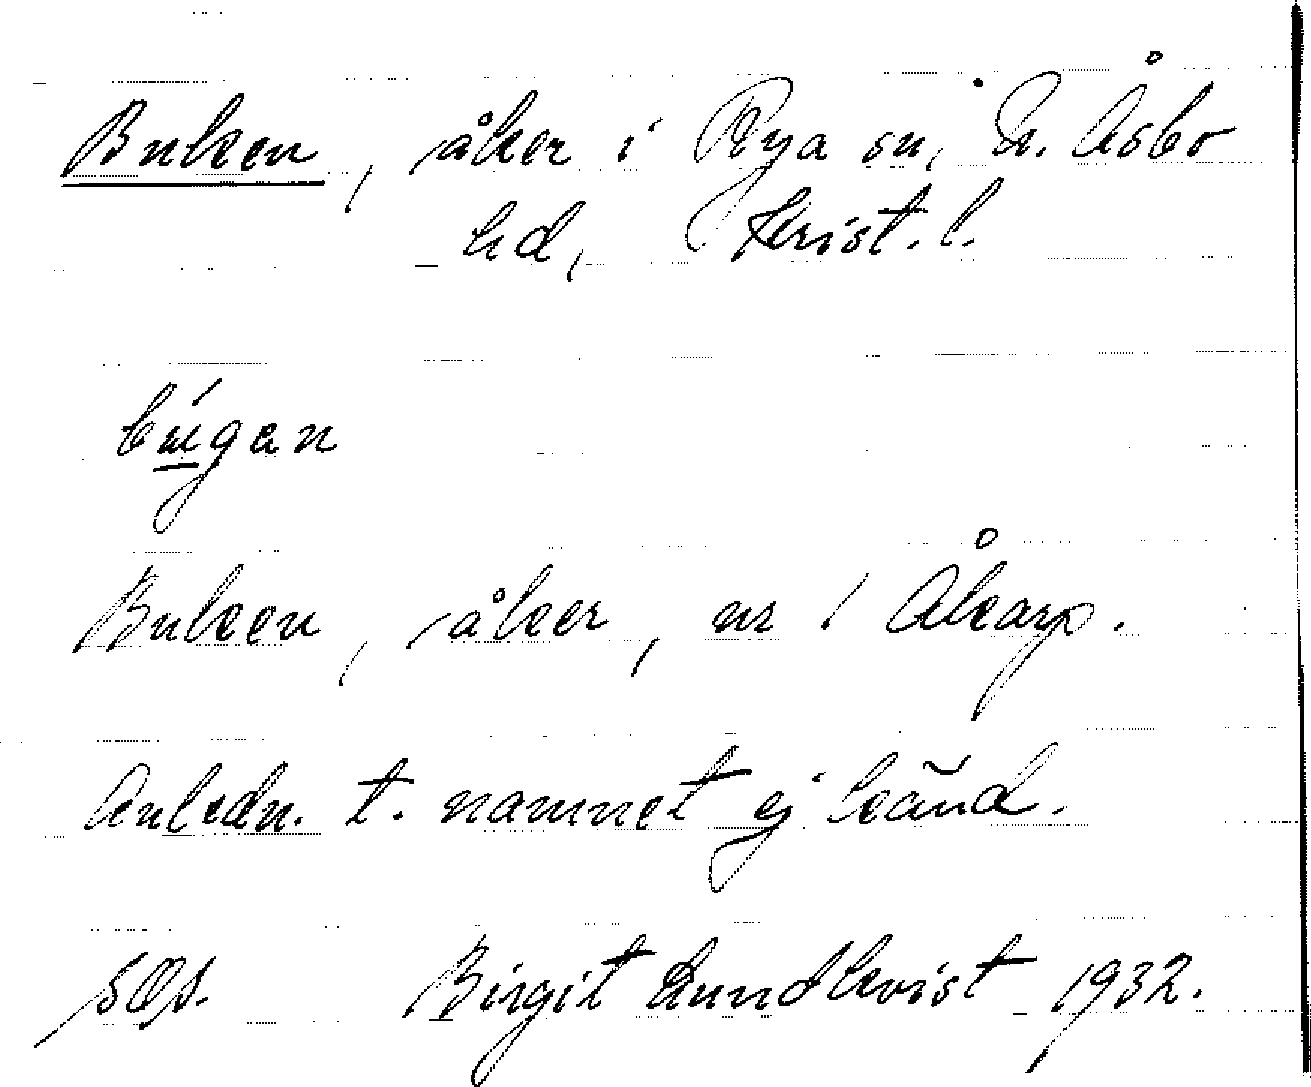 Buken, åker i Rya sn, N. Åsbo
hd, Krist. l.
búgan
Buken, åker, nr 1 Åkarp.
Anledn. t. namnet ej känd.
Birgit Lundkvist 1932.